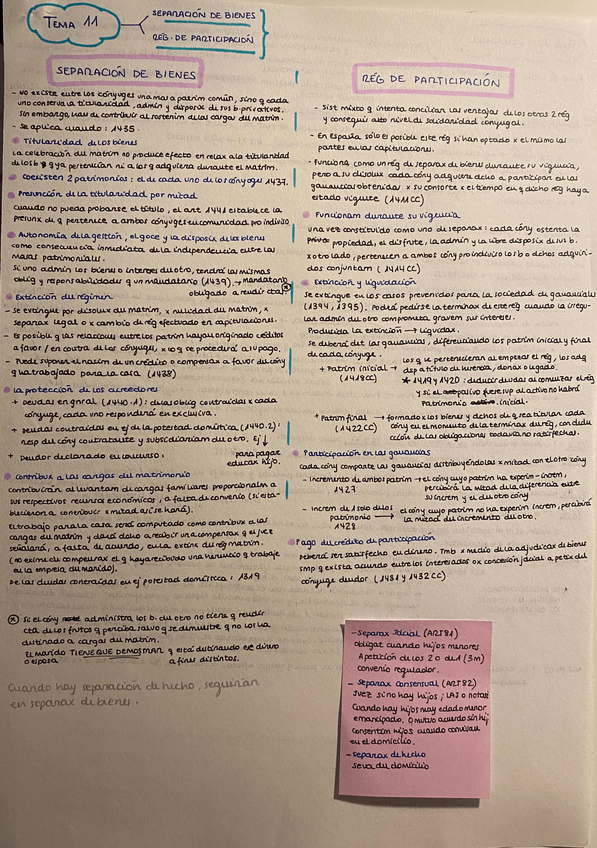 TEMA 11
SEPARACIÓN DE BIENES
RÉG. DE PARTICIPACIÓN
SEPARACIÓN DE BIENES
- No existe entre los cónyuges una masa patrim común, sino q cada
uno conserva la titularidad, admin y dispone de sus b. privativos.
Sin embargo, han de contribuir al sostenim de las cargas del matrim.
- Se aplica cuando: 1435.
Titularidad de los bienes
La celebración del matrim no produce efecto en relax a la titularidad
de los b q ya pertenecían ni a los q adquiera durante el matrim.
Coexisten 2 patrimonios: el de cada uno de los cónyuges 1437.
Presunción de la titularidad por mitad
Cuando no pueda probarse el título, el art 1441 establece la
presunx de q pertenece a ambos cónyuges en comunidad pro indiviso
Autonomía de la gestión, el goce y la disposix de los bienes
como consecuencia inmediata de la independencia entre las
masas patrimoniales.
Si uno admin los bienes o intereses del otro, tendrá las mismas
oblig y responsabilidades q un mandatario (1439). → mandatario
obligado a rendir cta
Extinción del régimen
- Se extingue por disolux du matrim, x nulidad du matrim, x
separax legal o x cambio de rég efectuado en capitulaciones.
- Es posible q las relaciones entre los patrim hayan originado créditos
a favor / en contra de los cónyuges, x lo q se procederá a su pago.
- Puede suponer el nacim de un crédito o compensax a favor du cóny
q ha trabajado para la casa (1438)
La protección de los acreedores
+ Deudas en gnral (1440.1): de las oblig contraídas x cada
cónyuge, cada uno responderá en exclusiva.
+ Deudas contraídas en ej de la potestad doméstica (1440.2):
resp del cóny contratante y subsidiariam du otro. Ej ↓
para pagar
educax hijo.
+ Deudor declarado en concurso:
Contribux a las cargas du matrimonio
Contribuirán al levantam de cargas familiares proporcionalm a
sus respectivos recursos económicos, a falta de convenio (si esta-
blecieron a contribuir x mitad así se hará).
El trabajo para la casa será computado como contribux a las
cargas du matrim y dará dcho a recibir una compensax q el juez
señalará, a falta de acuerdo, en la extinx du rég matrim.
en la empresa du marido).
De las deudas contraídas en ej potestad doméstica: 1319
Si el cóny administra los b. du otro no tiene q rendir
cta de los frutos q perciba salvo q se demuestre q no los ha
destinado a cargas du matrim.
El marido TIENE QUE DEMOSTRAR q está destinando ese dinero
o esposa a fines distintos.
Cuando hay separación de hecho, seguirían
en separax de bienes.
RÉG DE PARTICIPACIÓN
- Sist mixto q intenta conciliar las ventajas de los otros 2 rég
y conseguir alto nivel de solidaridad conyugal.
- En España solo es posible este rég si han optado x el mismo las
partes en las capitulaciones.
- Funciona como un rég de separax de bienes durante su vigencia,
pero a su disolux cada cóny adquiere dcho a participar en las
ganancias obtenidas x su consorte x el tiempo en q dicho rég haya
estado vigente (1411 CC)
Funcionam durante su vigencia
Una vez constituido como uno de separax: cada cóny ostenta la
propiedad, el disfrute, la admin y la libre disposix de sus b.
x otro lado, pertenecen a ambos cóny pro indiviso los b o dchos adquiri-
dos conjuntam (1414 CC)
Extinción y liquidación
Se extingue en los casos prevenidos para la sociedad de gananciales
(1394, 1395). Podrá pedirse la terminax de este rég cuando la irregu-
lar admin du otro comprometa gravem sus intereses.
Producida la extinción → liquidax.
Se deberá det las ganancias, diferenciando los patrim inicial y final
de cada cónyuge.
+ Patrim inicial → los q le pertenecieran al empezar el rég, los adq
(1418 CC) dsp a título de herencia, donax o legado.
* 1419 y 1420: deducir deudas al comenzar el rég
y si el pasivo fuere sup al activo no habrá
patrimonio inicial.
+ Patrim final → formado x los bienes y dchos de q sea titular cada
(1422 CC) cóny en el momento de la terminax du rég, con dedu
cción de las obligaciones todavía no satisfechas.
Participación en las ganancias
Cada cóny comparte las ganancias distribuyéndolas x mitad con el otro cóny
- Incremento de ambos patrim → el cóny cuyo patrim ha experim - increm,
1427 percibirá la mitad de la diferencia entre
su increm y el du otro cóny
- Increm de 1 solo de los → el cóny cuyo patrim no ha experim increm, percibirá
patrimonio la mitad du incremento du otro.
1428
Pago du crédito de participación
Deberá ser satisfecho en dinero. Tmb x medio de la adjudicax de bienes
smp q exista acuerdo entre los interesados o x concesión jdcial a petix del
cónyuge deudor (1431 y 1432 CC)
- Separax Jdcial (ART 81)
Obligat cuando hijos menores
A petición de los 2 o de 1 (3m)
convenio regulador.
- Separax Consensual (ART 82)
Juez si no hay hijos; LAJ o notario
Cuando hay hijos may edad o menor
emancipado. O mutuo acuerdo sin hij
consentim hijos cuando convivan
en el domicilio.
- Separax de hecho
se va du domicilio